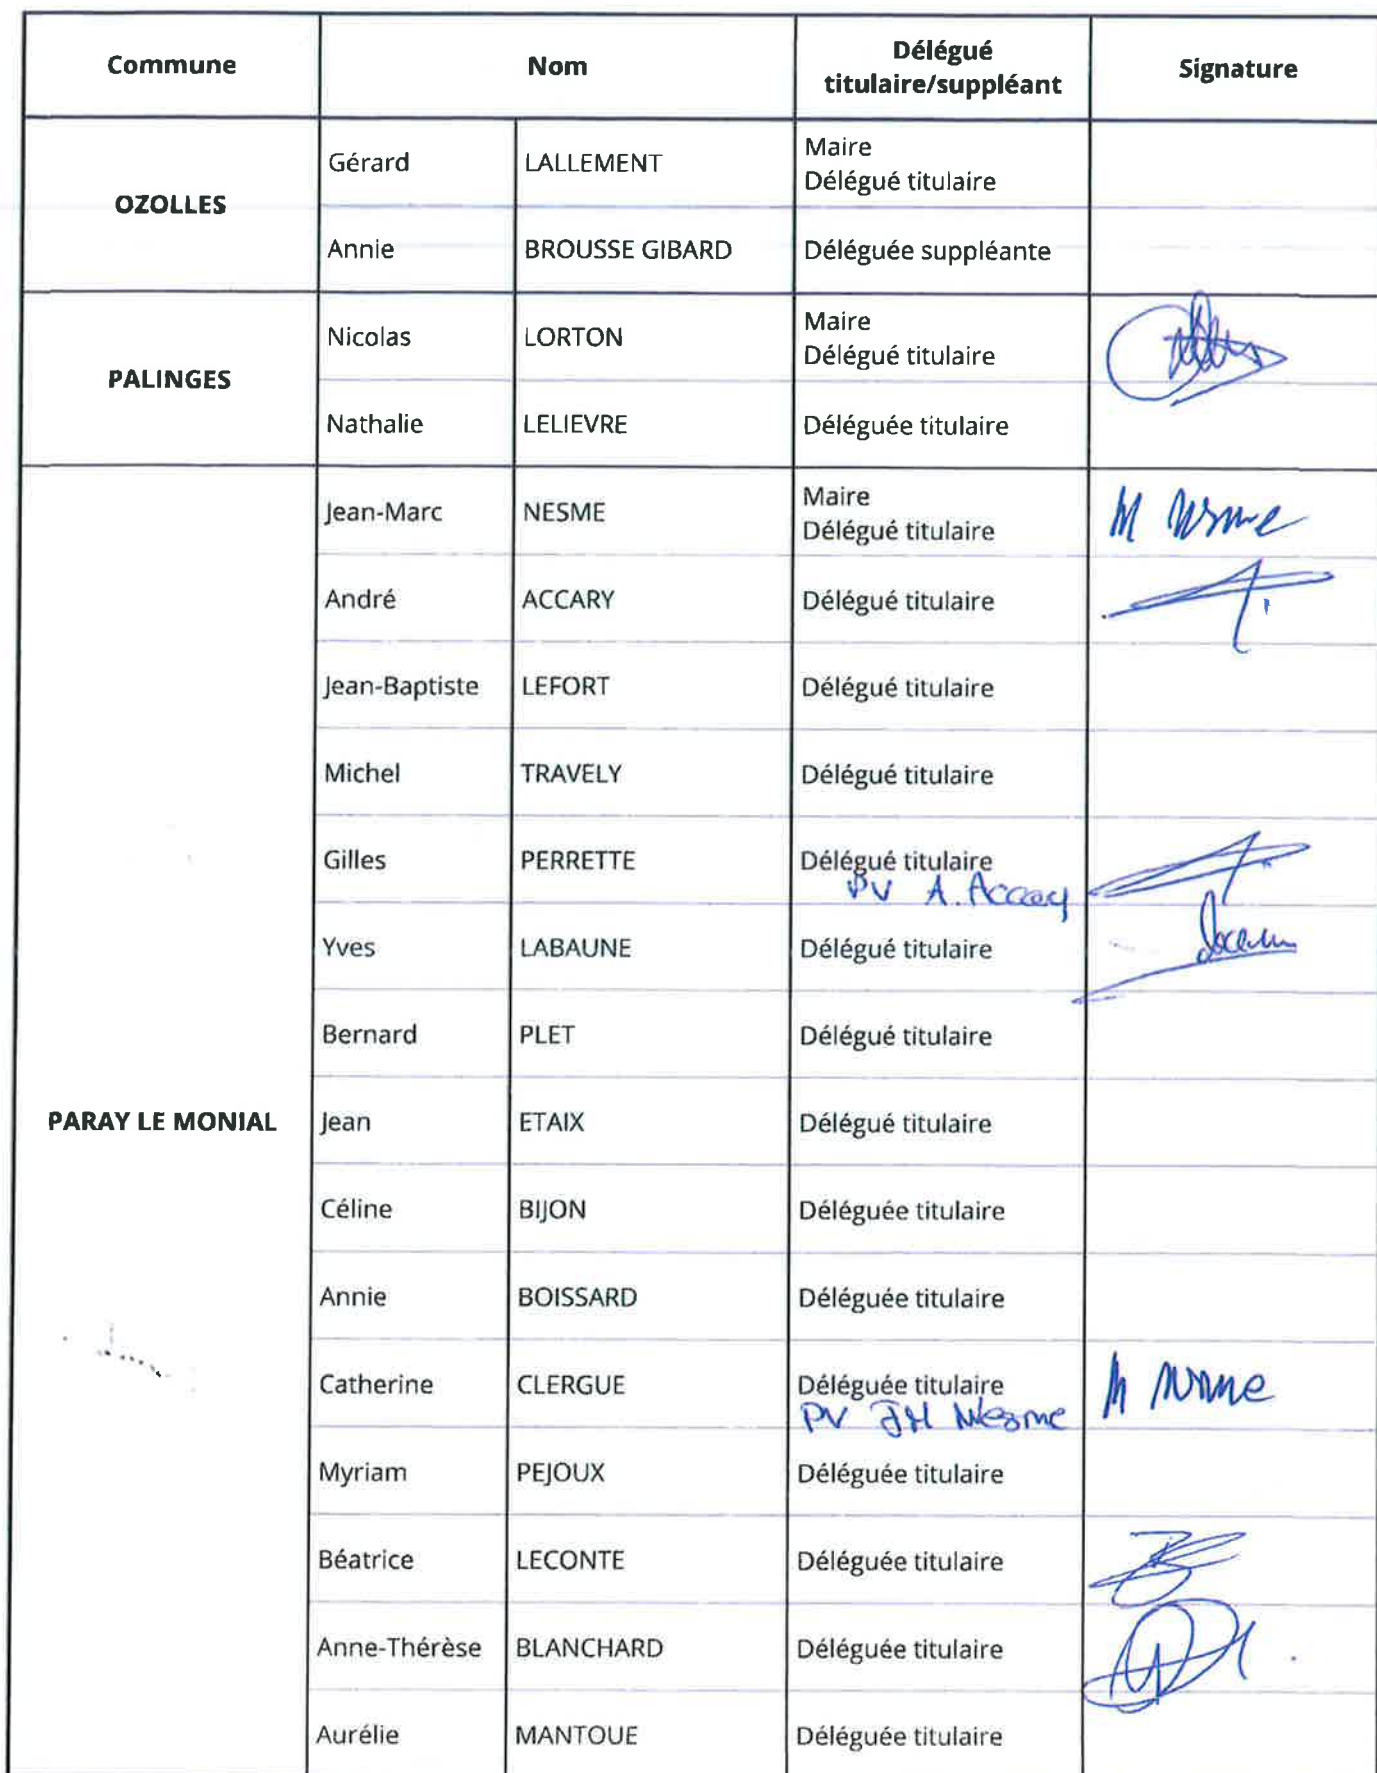 Commune Nom Délégué titulaire/suppléant Signature
OZOLLES
Gérard LALLEMENT Maire
Délégué titulaire
Annie BROUSSE GIBARD Déléguée suppléante
PALINGES
Nicolas LORTON Maire
Délégué titulaire
Nathalie LELIEVRE Déléguée titulaire
PARAY LE MONIAL
Jean-Marc NESME Maire
Délégué titulaire
M Nesme
André ACCARY Délégué titulaire
Jean-Baptiste LEFORT Délégué titulaire
Michel TRAVELY Délégué titulaire
Gilles PERRETTE Délégué titulaire
PV A. Accary
Yves LABAUNE Délégué titulaire
Bernard PLET Délégué titulaire
Jean ETAIX Délégué titulaire
Céline BIJON Déléguée titulaire
Annie BOISSARD Déléguée titulaire
Catherine CLERGUE Déléguée titulaire
PV JM Nesme
M Nesme
Myriam PEJOUX Déléguée titulaire
Béatrice LECONTE Déléguée titulaire
Anne-Thérèse BLANCHARD Déléguée titulaire
Aurélie MANTOUE Déléguée titulaire